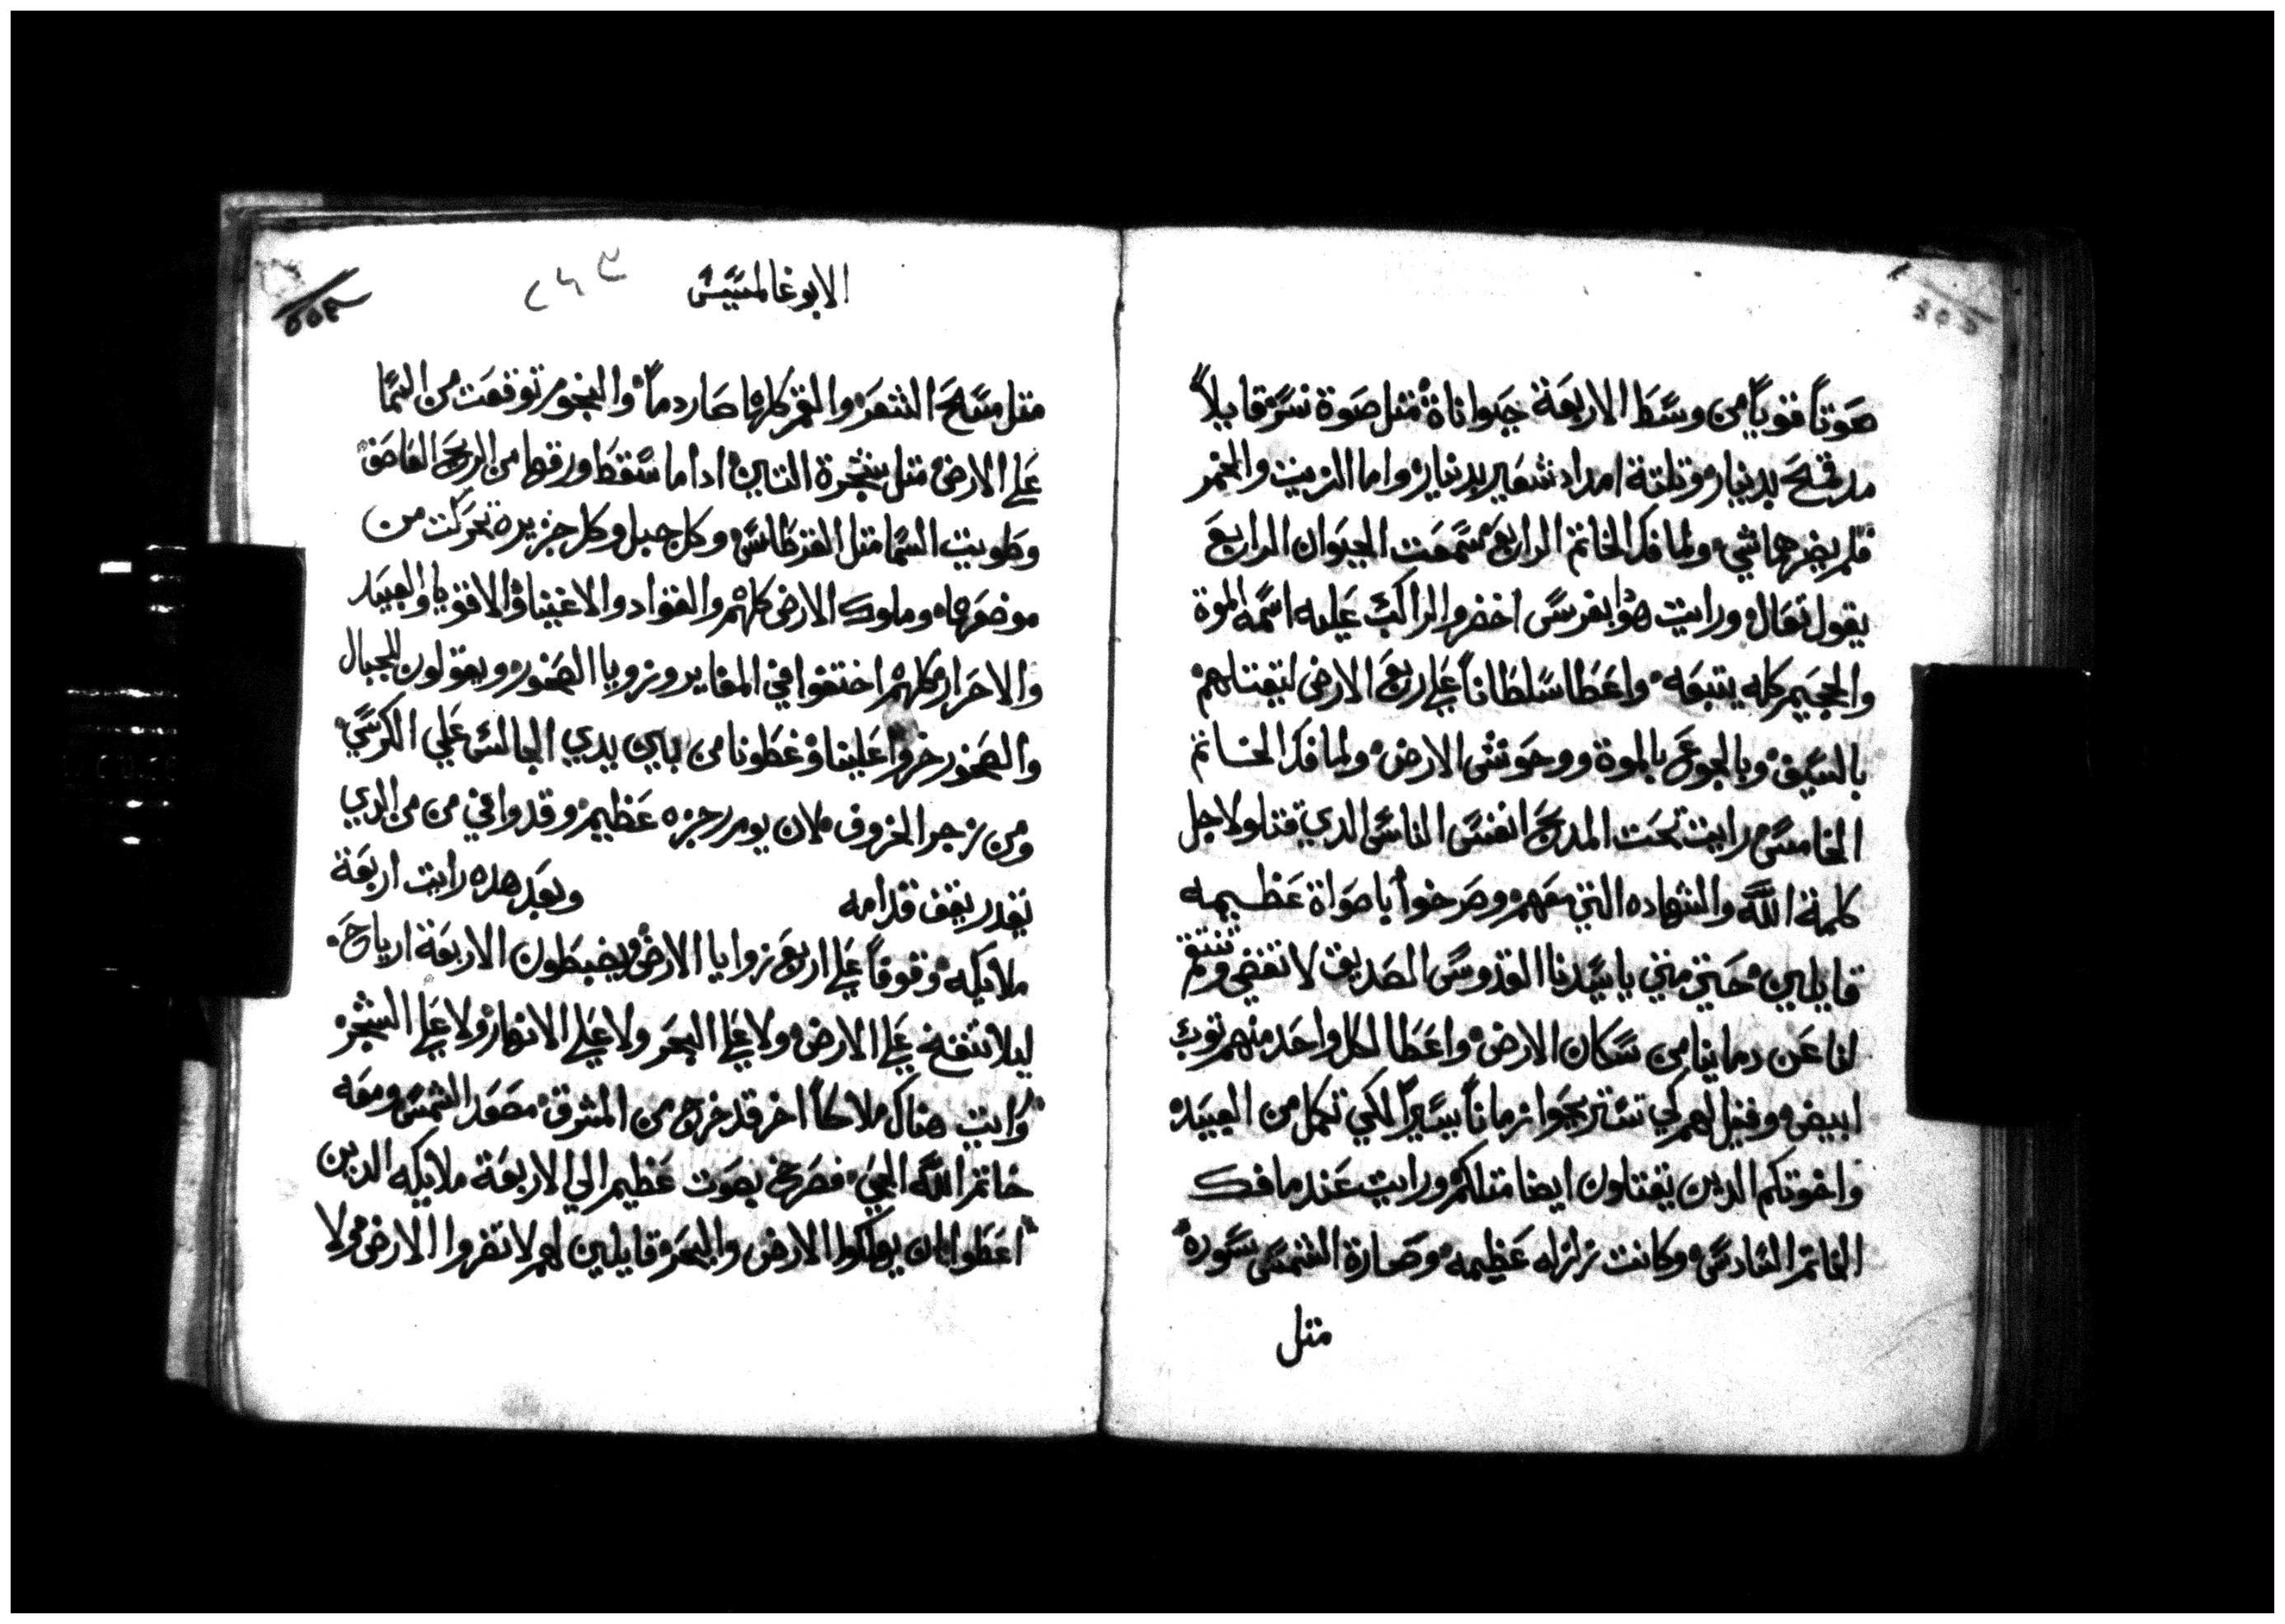 صوتاً قوياً من وسط الاربعة حيواناة مثل صوة نسر قايلاً
مد قمح بدينار وتلتة امداد شعير بدينار واما الزيت والخمر
فلم يضرهما شي ولما فك الخاتم الرابع سمعت الحيوان الرابع
يقول تعال ورايت هوذا بفرس اخضر والراكب عليه اسمه الموة
والجحيم كله يتبعه واعطا سلطاناً علي ربع الارض ليقتلهم
بالسيف وبالجوع بالموة ووحوش الارض ولما فك الخاتم
الخامس رايت تحت المدبح انفس الناس الدي قتلو لاجل
كلمة الله والشهاده التي معهم وصرخوا باصواة عظيمه
قايلين حتي متي ياسيدنا القدوس الصديق لا تقضي وتنتقم
لنا عن دماينا من سكان الارض واعطا لكل واحد منهم توب
ابيض وقيل لهم كي تستريحوا زماناً يسيراً لكي تكمل من العبيد
واخوتكم الدين يقتلون ايضا متلكم ورايت عند ما فك
الخاتم السادس وكانت زلزله عظيمه وصارة الشمس سوره
مثل
الابوغالمسيس
٢٤٣
مثل مسح الشعر والقمر كلها صار دماً والنجوم توقعت من السما
علي الارض مثل شجرة التين ادا ما سقط ورقها من الريح العاصف
وطويت السما متل القرطاس وكل جبل وكل جزيرة تحركت من
موضعها وملوك الارض كلهم والقواد والاغنيا والاقويا والعبيد
والاحرار كلهم اختفوا في المغاير وزوايا الصخور ويقولون للجبال
والصخور خروا علينا وغطونا من بين يدي الجالس علي الكرسي
ومن زجر الخروف لان يوم رجزه عظيم وقد وافي من من الدي
يقدر يقف قدامه وبعد هده رايت اربعة
ملايكه وقوفاً علي اربع زوايا الارض ويضبطون الاربعة ارياح
ليلا تنفخ علي الارض ولا علي البحر ولا علي الانهار ولا علي الشجر
ورايت هناك ملاكاً اخر قد خرج من المشرق مصعد الشمس ومعه
خاتم الله الحي فصرخ بصوت عظيم الي الاربعة ملايكه الدين
اعطوا بان يهلكوا الارض والبحر وقايلين لهم لا تضروا الارض ولا